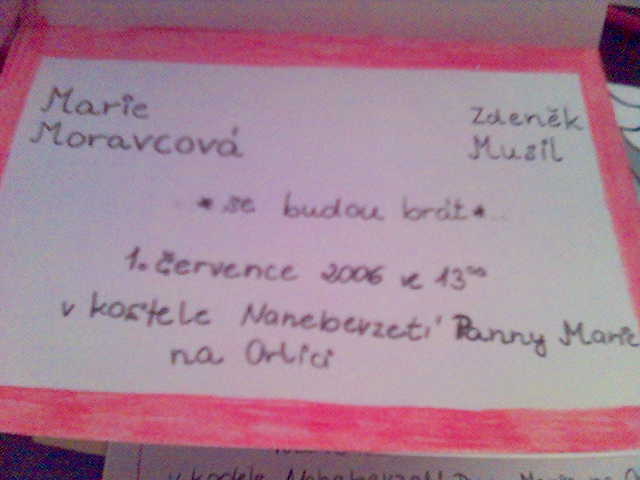 Marie
Moravcová
Zdeněk
Musil
* se budou brát *
1. července 2006 ve 13⁰⁰
v kostele Nanebevzetí Panny Marie
na Orlici
v kostele